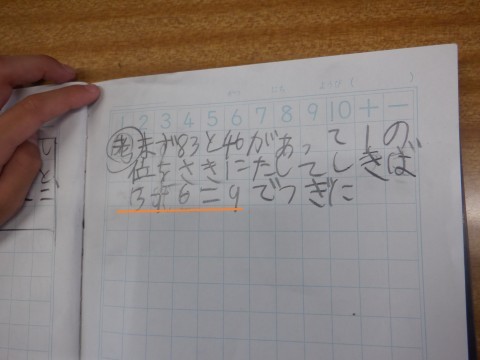 1 2 3 4 5 6 7 8 9 10 + −
考まず83と46があって1の
位をさきにたしてしきば
3+6=9でつぎに